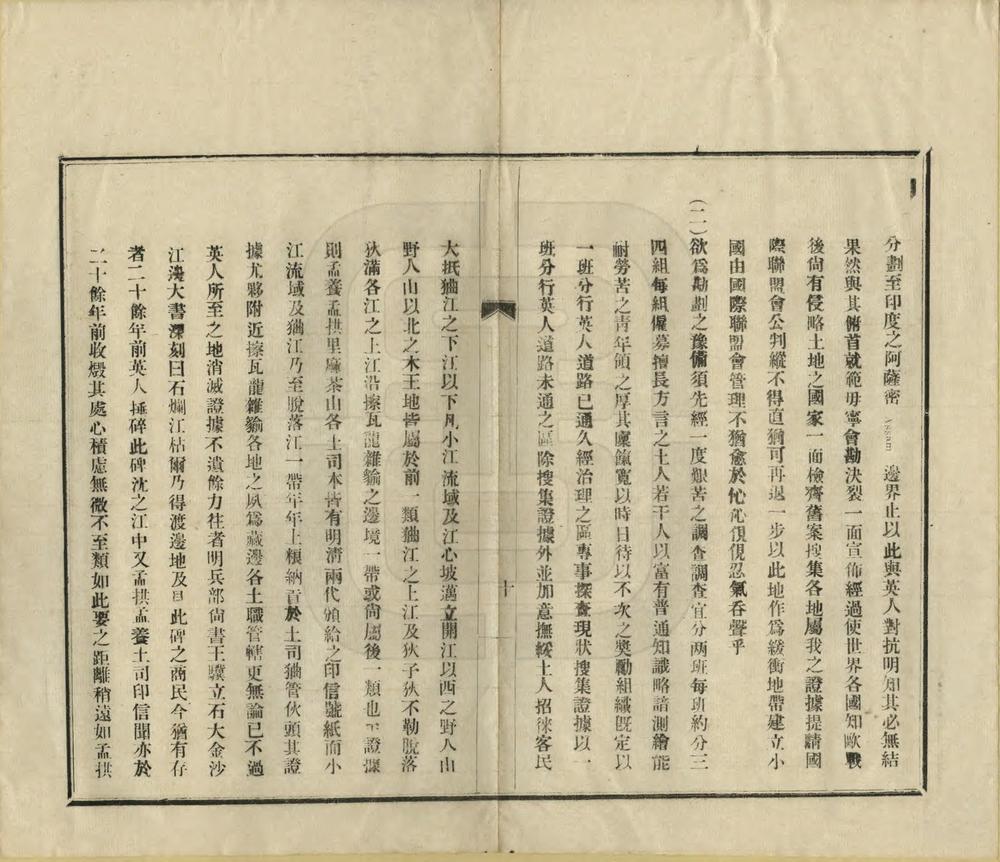 分劃至印度之阿薩密 Assam 邊界止以此與英人對抗明知其必無結
果然與其俯首就範毋寧會勘決裂一面宣佈經過使世界各國知歐戰
後尚有侵略土地之國家一面檢齊舊案搜集各地屬我之證據提請國
際聯盟會公判縱不得直猶可再退一步以此地作爲緩衝地帶建立小
國由國際聯盟會管理不猶愈於忙忙俔俔忍氣吞聲乎
(二)欲爲勘劃之豫備須先經一度艱苦之調查調查宜分兩班每班約分三
四組每組僱募擅長方言之土人若干人以富有普通知識略諳測繪能
耐勞苦之青年領之厚其廩餼寬以時日待以不次之獎勵組織既定以
一班分行英人道路已通久經治理之區專事探查現狀搜集證據以一
班分行英人道路未通之區除搜集證據外並加意撫綏土人招徠客民
十
大抵㺄江之下江以下凡小江流域及江心坡邁立開江以西之野人山
野人山以北之木王地皆屬於前一類㺄江之上江及狄子狄不勒脫落
狄滿各江之上江沿擦瓦龍雜貐之邊境一帶或尚屬後一類也 證據
則孟養孟拱里麻茶山各土司本皆有明清兩代頒給之印信號紙而小
江流域及㺄江乃至脫落江一帶年年上糧納貢於土司㺄管伙頭其證
據尤夥附近擦瓦龍雜貐各地之夙爲藏邊各土職管轄更無論已不過
英人所至之地消滅證據不遺餘力往者明兵部尚書王驥立石大金沙
江邊大書深刻曰石爛江枯爾乃得渡邊地及見此碑之商民今猶有存
者二十餘年前英人捶碎此碑沈之江中又孟拱孟養土司印信聞亦於
二十餘年前收燬其處心積慮無微不至類如此要之距離稍遠如孟拱